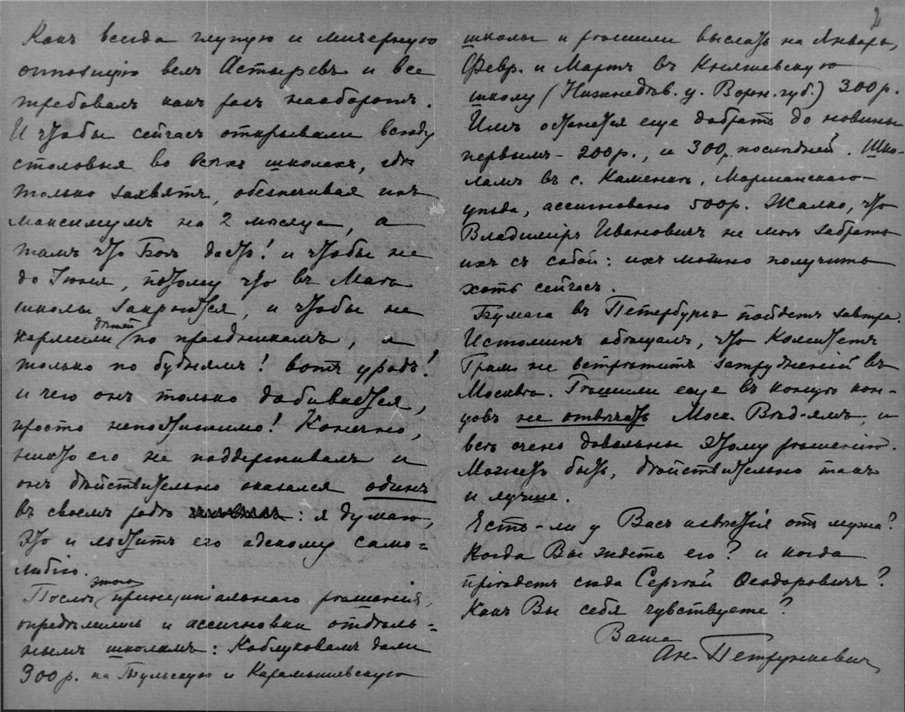 Какъ всегда глупую и мизерную
оппозицію велъ Астыревъ и все
требовалъ какъ разъ наоборотъ.
И чтобы сейчасъ открывали всюду
столовыя во всѣхъ школахъ, гдѣ
только захвятъ, обезпечивая ихъ
максимумъ на 2 мѣсяца, а
тамъ что Богъ дастъ! и чтобы не
до Іюня, потому что въ Маѣ
школы закроются, и чтобы не
кормили дѣтей по праздникамъ, а
только по буднямъ! вотъ уродъ!
и чего онъ только добивается,
просто непостижимо! Конечно,
никто его не поддерживалъ и
онъ дѣйствительно оказался одинъ
въ своемъ родѣ: я думаю,
это и льститъ его адскому само=
любію.
Послѣ этого принципіальнаго рѣшенія,
опредѣлились и ассигновки отдѣль=
нымъ школамъ: Каблуковымъ дали
300 р. на Тульскую и Карамышевскую
2
школы и рѣшили выслать на Январь,
Февр. и Мартъ въ Княжевскую
школу (Нижнедѣв. у. Ворон. губ.) 300 р.
Имъ останется еще добрать до новины
первымъ - 200 р., и 300 р. послѣдней. Шко-
ламъ въ с. Каменкѣ, Моршанскаго
уѣзда, ассигновано 500 р. Жалко, что
Владиміръ Ивановичъ не могъ забрать
ихъ съ собой: ихъ можно получить
хоть сейчасъ.
Бумага въ Петербургъ пойдетъ завтра.
Истоминъ обѣщалъ, что Комитетъ
Грам. не встрѣтитъ затрудненій въ
Москвѣ. Рѣшили еще въ концѣ кон-
цовъ не отвѣчать Моск. Вѣд-ямъ, и
всѣ очень довольны этому рѣшенію.
Можетъ быть, дѣйствительно такъ
и лучше.
Есть-ли у Васъ извѣстія отъ мужа?
Когда Вы ждете его? и когда
пріѣдетъ сюда Сергѣй Ѳеодоровичъ?
Какъ Вы себя чувствуете?
Ваша
Ан. Петрункевичъ